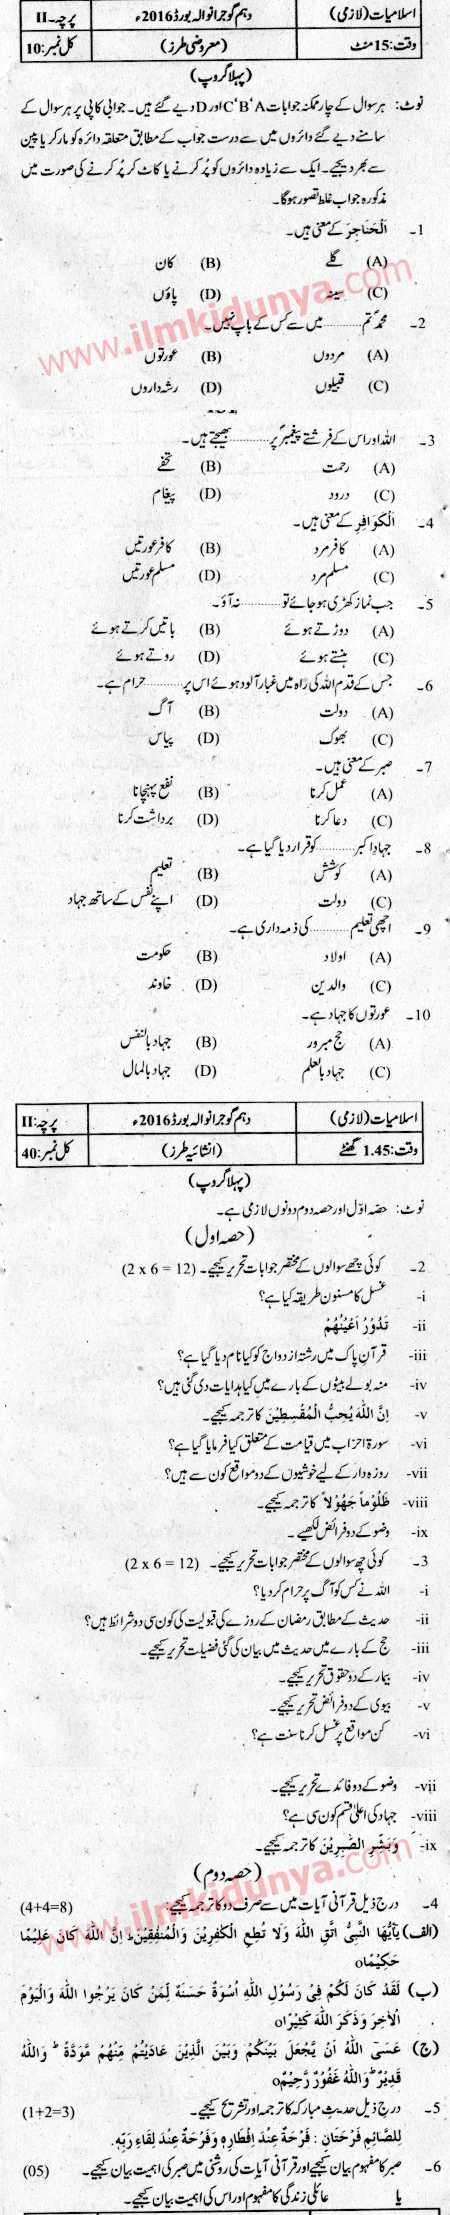 اسلامیات (لازمی) دہم گوجرانوالہ بورڈ 2016ء پرچہ-II
وقت: 15 منٹ (معروضی طرز) کل نمبر: 10
(پہلا گروپ)
نوٹ: ہر سوال کے چار ممکنہ جوابات A'B'C اور D دیے گئے ہیں۔ جوابی کاپی پر ہر سوال کے
سامنے دیے گئے دائروں میں سے درست جواب کے مطابق متعلقہ دائرہ کو مارکر یا پین
سے بھر دیجیے۔ ایک سے زیادہ دائروں کو پُر کرنے یا کاٹ کر پُر کرنے کی صورت میں
مذکورہ جواب غلط تصور ہوگا۔
1۔ اَلْحَنَاجِرَ کے معنی ہیں۔
(A) گلے (B) کان
(C) سینہ (D) پاؤں
www.ilmkidunya.com
2۔ محمدؐ تم .......... میں سے کس کے باپ نہیں۔
(A) مردوں (B) عورتوں
(C) قبیلوں (D) رشتہ داروں
3۔ اللہ اور اس کے فرشتے پیغمبرؐ پر .......... بھیجتے ہیں۔
(A) رحمت (B) تحفے
(C) درود (D) پیغام
4۔ اَلْكَوَافِرِ کے معنی ہیں۔
(A) کافر مرد (B) کافر عورتیں
(C) مسلم مرد (D) مسلم عورتیں
5۔ جب نماز کھڑی ہو جائے تو .......... نہ آؤ۔
(A) دوڑتے ہوئے (B) باتیں کرتے ہوئے
(C) ہنستے ہوئے (D) روتے ہوئے
6۔ جس کے قدم اللہ کی راہ میں غبار آلود ہوئے اس پر .......... حرام ہے۔
(A) دولت (B) آگ
(C) بھوک (D) پیاس
7۔ صبر کے معنی ہیں۔
(A) عمل کرنا (B) نفع پہنچانا
(C) دعا کرنا (D) برداشت کرنا
8۔ جہاد اکبر .......... کو قرار دیا گیا ہے۔
(A) کوشش (B) تعلیم
(C) دولت (D) اپنے نفس کے ساتھ جہاد
9۔ اچھی تعلیم .......... کی ذمہ داری ہے۔
(A) اولاد (B) حکومت
(C) والدین (D) خاوند
10۔ عورتوں کا جہاد ہے۔
(A) حج مبرور (B) جہاد بالنفس
(C) جہاد بالعلم (D) جہاد بالمال
اسلامیات (لازمی) دہم گوجرانوالہ بورڈ 2016ء پرچہ: II
وقت: 1.45 گھنٹے (انشائیہ طرز) کل نمبر: 40
(پہلا گروپ)
نوٹ: حصہ اوّل اور حصہ دوم دونوں لازمی ہے۔
(حصہ اول)
2۔ کوئی چھے سوالوں کے مختصر جوابات تحریر کیجیے۔ (2 x 6 = 12)
i- غسل کا مسنون طریقہ کیا ہے؟
ii- تَدُوْرُ اَعْيُنُهُمْ
iii- قرآن پاک میں رشتہ ازدواج کو کیا نام دیا گیا ہے؟
iv- منہ بولے بیٹوں کے بارے میں کیا ہدایات دی گئی ہیں؟
v- اِنَّ اللّٰهَ يُحِبُّ الْمُقْسِطِيْنَ کا ترجمہ کیجیے۔
vi- سورۃ احزاب میں قیامت کے متعلق کیا فرمایا گیا ہے؟
vii- روزہ دار کے لیے خوشیوں کے دو مواقع کون سے ہیں؟
viii- ظَلُوْماً جَهُوْلاً کا ترجمہ کیجیے۔
ix- وضو کے دو فرائض لکھیے۔
3۔ کوئی چھ سوالوں کے مختصر جوابات تحریر کیجیے۔ (2 x 6 = 12)
i- اللہ نے کس کو آگ پر حرام کر دیا؟
ii- حدیث کے مطابق رمضان کے روزے کی قبولیت کی کون سی دو شرائط ہیں؟
iii- حج کے بارے میں حدیث میں بیان کی گئی فضیلت تحریر کیجیے۔
iv- بیمار کے دو حقوق تحریر کیجیے۔
v- بیوی کے دو فرائض تحریر کیجیے۔
vi- کن مواقع پر غسل کرنا سنت ہے؟
vii- وضو کے دو فائدے تحریر کیجیے۔
viii- جہاد کی اعلیٰ قسم کون سی ہے؟
ix- وَبَشِّرِ الصّٰبِرِيْنَ کا ترجمہ کیجیے۔
(حصہ دوم)
www.ilmkidunya.com
4۔ درج ذیل قرآنی آیات میں سے صرف دو کا ترجمہ کیجیے۔ (4+4=8)
(الف) يٰۤاَيُّهَا النَّبِىُّ اتَّقِ اللّٰهَ وَلَا تُطِعِ الْكٰفِرِيْنَ وَالْمُنٰفِقِيْنَ ط اِنَّ اللّٰهَ كَانَ عَلِيْمًا
حَكِيْمًاo
(ب) لَقَدْ كَانَ لَكُمْ فِىْ رَسُوْلِ اللّٰهِ اُسْوَةٌ حَسَنَةٌ لِّمَنْ كَانَ يَرْجُوا اللّٰهَ وَالْيَوْمَ
الْاٰخِرَ وَذَكَرَ اللّٰهَ كَثِيْرًاo
(ج) عَسَى اللّٰهُ اَنْ يَّجْعَلَ بَيْنَكُمْ وَبَيْنَ الَّذِيْنَ عَادَيْتُمْ مِّنْهُمْ مَّوَدَّةً ط وَاللّٰهُ
قَدِيْرٌ ط وَاللّٰهُ غَفُوْرٌ رَّحِيْمٌo
5۔ درج ذیل حدیث مبارکہ کا ترجمہ اور تشریح کیجیے۔ (1+2=3)
لِلصَّائِمِ فَرْحَتَانِ : فَرْحَةٌ عِنْدَ اِفْطَارِهٖ وَفَرْحَةٌ عِنْدَ لِقَاءِ رَبِّهٖ.
6۔ صبر کا مفہوم بیان کیجیے اور قرآنی آیات کی روشنی میں صبر کی اہمیت بیان کیجیے۔ (05)
یا عائلی زندگی کا مفہوم اور اس کی اہمیت بیان کیجیے۔